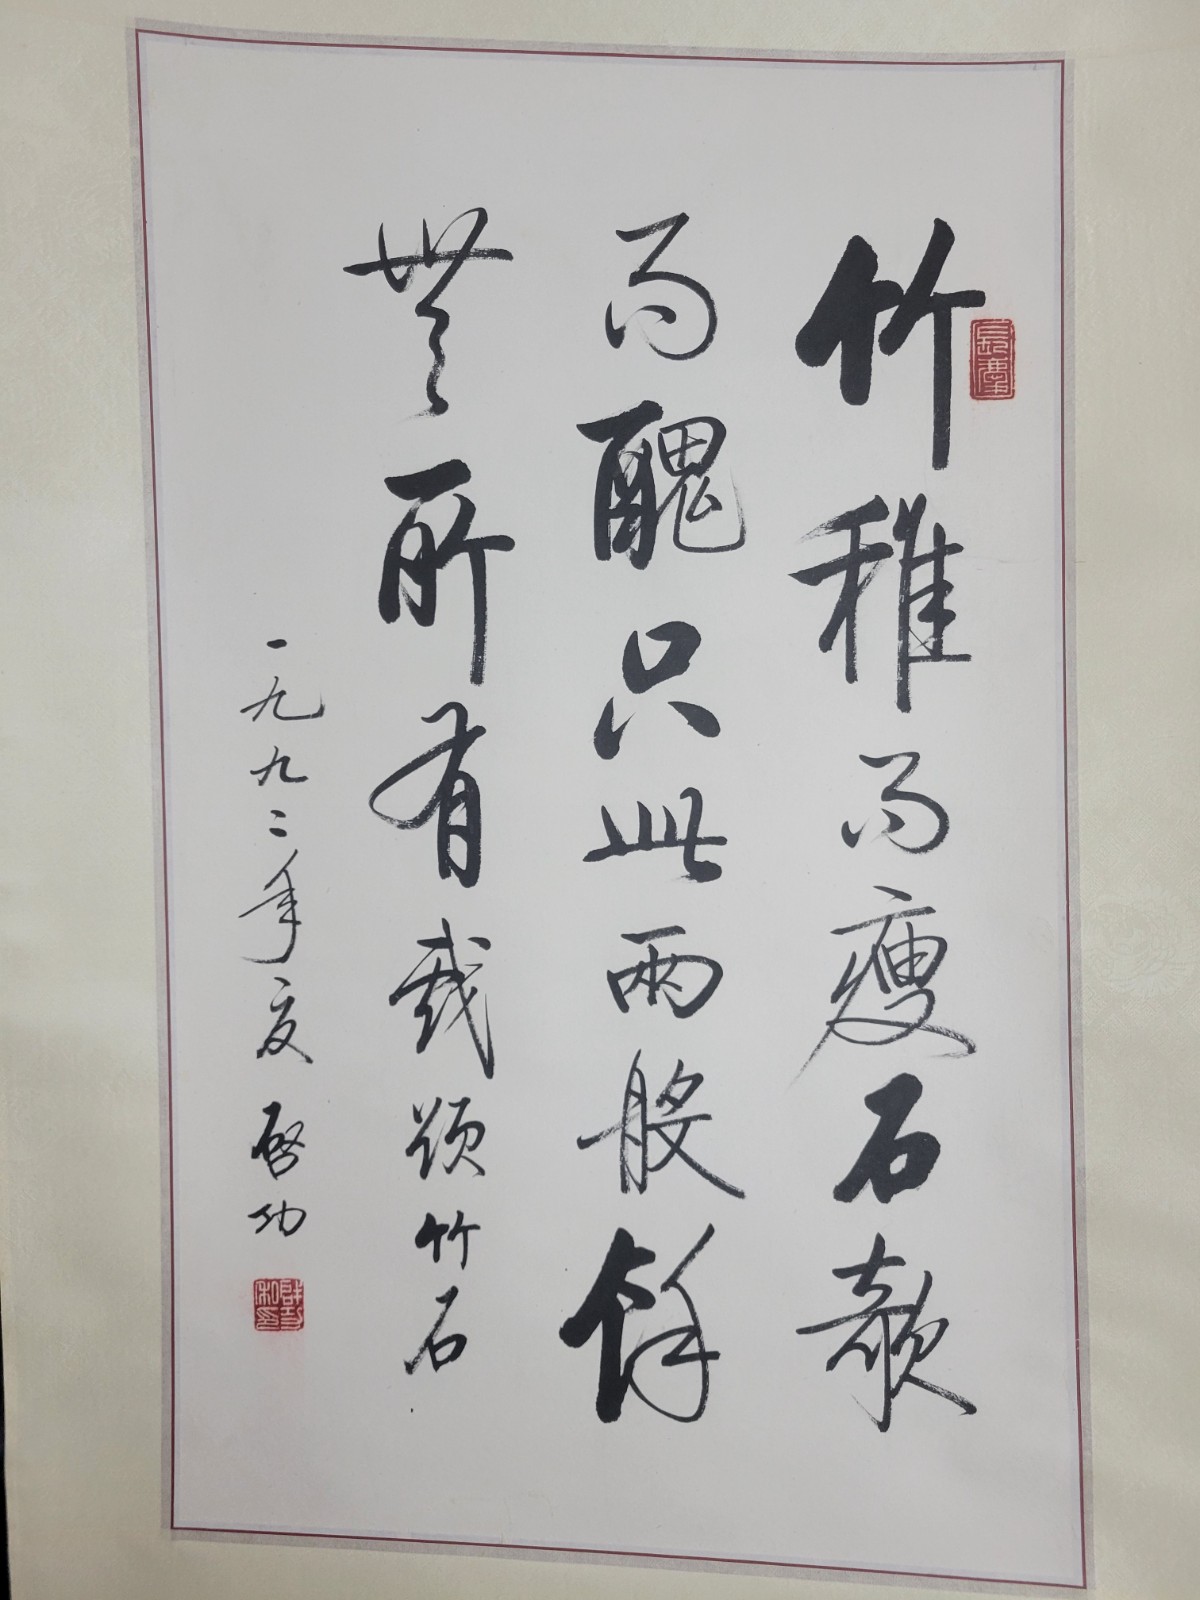 竹稚而瘦石
而醜只此兩般餘
無所有戲題竹石
一九九二年夏啓功